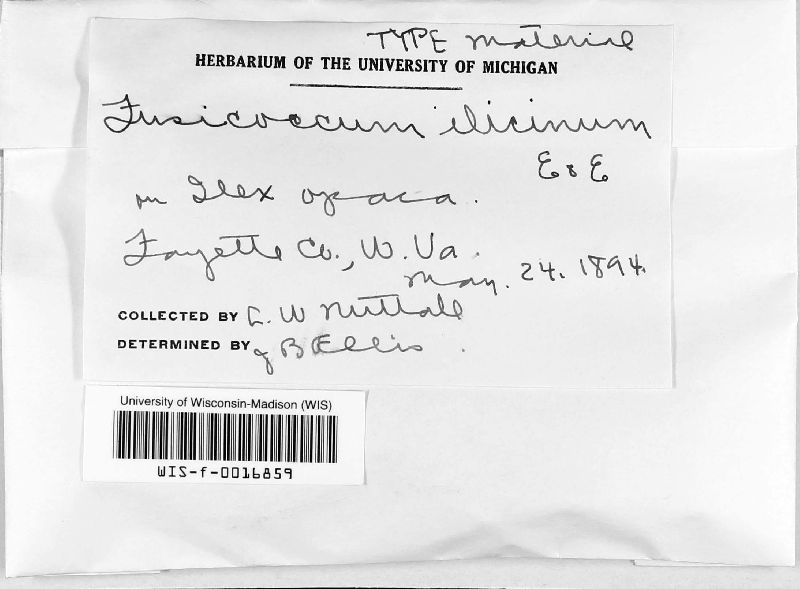 TYPE material
HERBARIUM OF THE UNIVERSITY OF MICHIGAN
Fusicoccum ilicinum
E & E
on Ilex opaca.
Fayette Co., W. Va.
May. 24. 1894.
COLLECTED BY L. W Nuttall
DETERMINED BY J B Ellis.
University of Wisconsin-Madison (WIS)
WIS-f-0016859